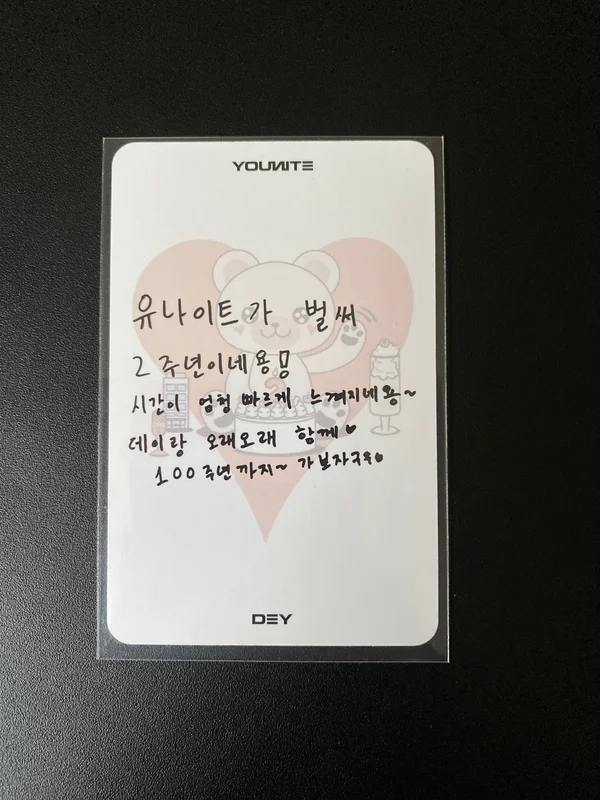 YOUNITE
유나이트가 벌써
2주년이네용!!
시간이 엄청 빠르게 느껴지네용~
데이랑 오래오래 함께♥
100주년까지~ 가보자구우♥
DEY